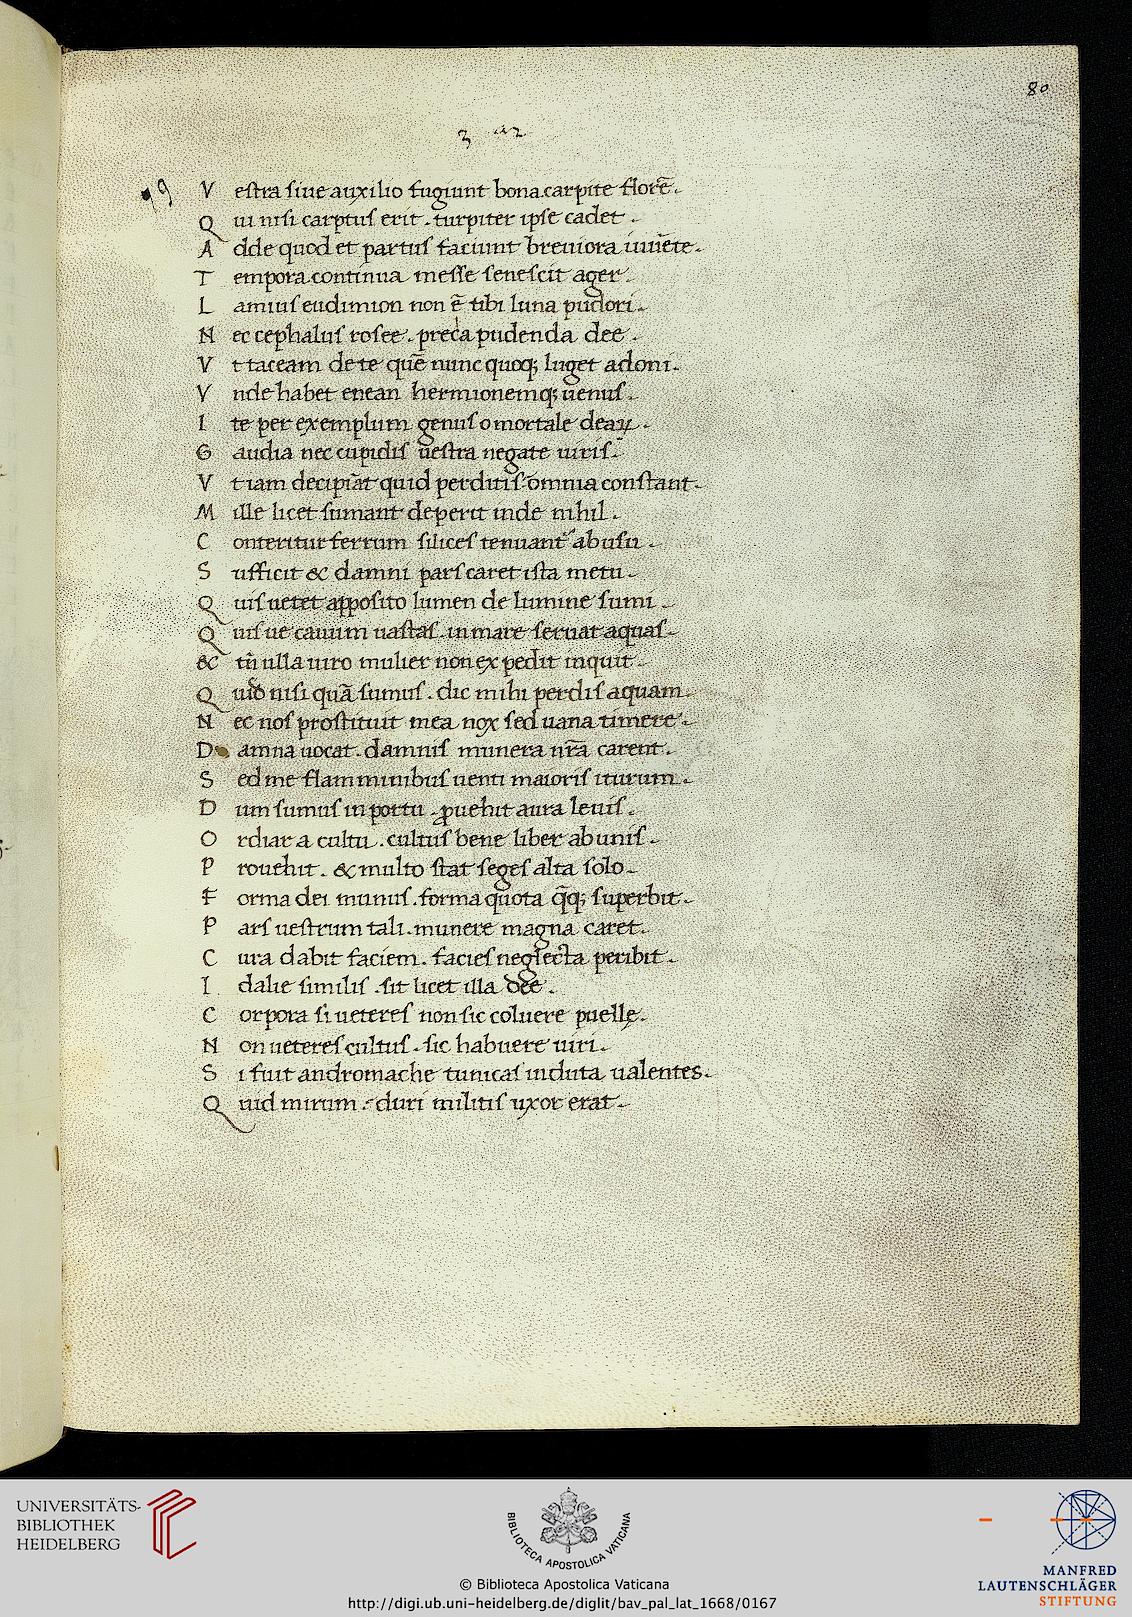 80
3 a2
79 V estra siue auxilio fugiunt bona.carpite florē.
Q ui nisi carptus erit. turpiter ipse cadet.
A dde quod et partus faciunt breuiora iuuēte.
T empora.continua messe senescit ager.
L amius eudimion non ē tibi luna pudori.
N ec cephalus rosee. preda pudenda dee.
V t taceam de te quē nunc quoq; luget adoni.
V nde habet enean hermionemq; uenus.
I te per exemplum genus o mortale deaꝝ.
G audia nec cupidis uestra negate uiris.
V t iam decipiāt quid perditis? omnia constant.
M ille licet sumant deperit inde nihil.
C onteritur ferrum silices tenuantᷣ ab usu.
S ufficit & damni pars caret ista metu.
Q uis uetet apposito lumen de lumine sumi.
Q uis ue cauum uastas. in mare seruat aquas.
& tn̄ ulla uiro mulier non expedit inquit.
Q uid nisi quā sumus. dic mihi perdis aquam.
N ec nos prostituit mea nox sed uana timere.
D amna uocat. damnis munera nr̄a carent.
S ed me flamminibus uenti maioris iturum.
D um sumus in portu. ꝓuehit aura leuis.
O rdiar a cultu. cultus bene liber ab unis.
P rouehit. & multo stat seges alta solo.
F orma dei munus. forma quota q̄q; superbit.
P ars uestrum tali. munere magna caret.
C ura dabit faciem. facies neglecta peribit.
I dalie similis. sit licet illa dee.
C orpora si ueteres non sic coluere puellę.
N on ueteres cultus. sic habuere uiri.
S i fuit andromache tunicas induta ualentes.
Q uid mirum? duri militis uxor erat.
UNIVERSITÄTS-
BIBLIOTHEK
HEIDELBERG
BIBLIOTECA APOSTOLICA VATICANA
© Biblioteca Apostolica Vaticana
http://digi.ub.uni-heidelberg.de/diglit/bav_pal_lat_1668/0167
MANFRED
LAUTENSCHLÄGER
STIFTUNG